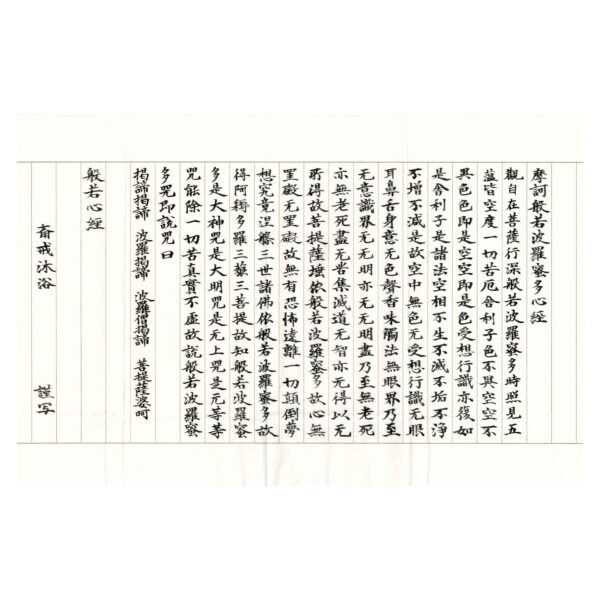 摩訶般若波羅蜜多心経
觀自在菩薩行深般若波羅蜜多時照見五
蘊皆空度一切苦厄舍利子色不異空空不
異色色即是空空即是色受想行識亦復如
是舍利子是諸法空相不生不滅不垢不浄
不增不減是故空中無色无受想行識无眼
耳鼻舌身意无色聲香味觸法無眼界乃至
无意識界无无明亦无无明盡乃至無老死
亦無老死盡无苦集滅道无智亦无得以无
所得故菩提薩埵依般若波羅蜜多故心無
罣礙无罣礙故無有恐怖遠離一切顛倒夢
想究竟涅槃三世諸佛依般若波羅蜜多故
得阿耨多羅三藐三菩提故知般若波羅蜜
多是大神咒是大明咒是无上咒是无等等
咒能除一切苦真實不虛故説般若波羅蜜
多咒即説咒曰
揭諦揭諦 波羅揭諦 波羅僧揭諦 菩提薩婆呵
般若心經
斎戒沐浴 謹写